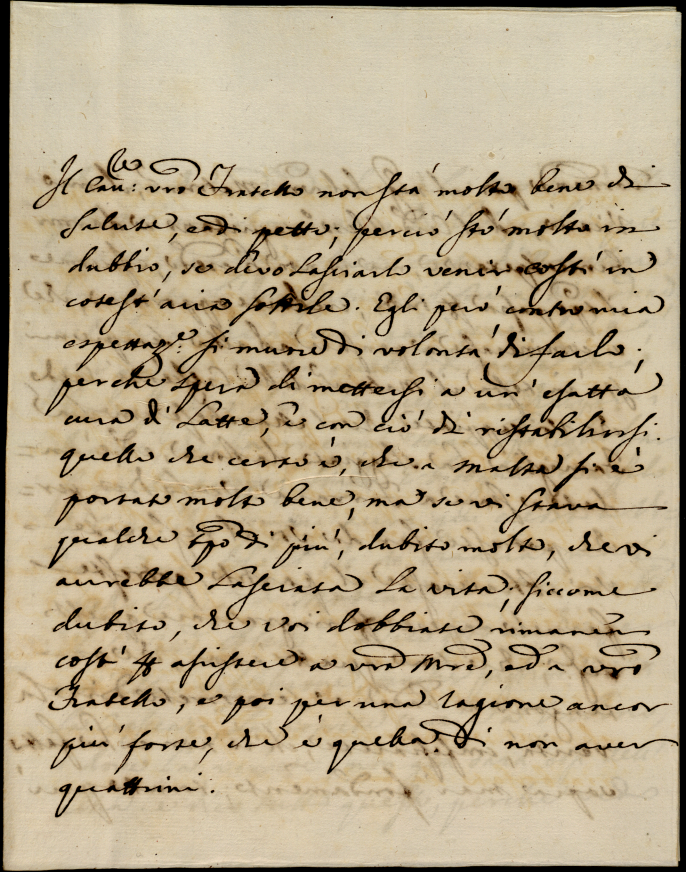 Il Cav:re vrõ Fratello non stà molto bene di
salute, e di petto; perciò stò molto in
dubbio, se devo Lasciarlo venir costì in
cotest' aria sottile. Egli però contro mia
espettaz.e si muore di volontà di farlo;
perche spera di mettersi a un' esatta
cura di Latte, e con ciò di ristabilirsi.
quello che certo è, che a Malta si è
portato molto bene, ma se vi stava
qualche tpo di più, dubito molto, che vi
aurebbe Lasciata La vita; siccome
dubito, che voi dobbiate rimanere
costì p assistere a vrã Mre, ed a vrõ
Fratello; e poi per una ragione ancor
più forte, che è quella di non aver
quattrini.